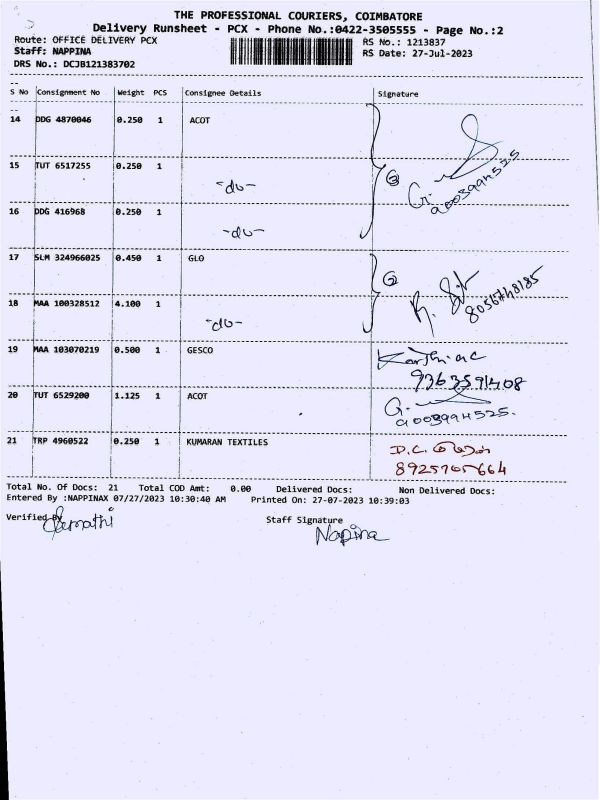 THE PROFESSIONAL COURIERS, COIMBATORE
Delivery Runsheet - PCX - Phone No.:0422-3505555 - Page No.:2
Route: OFFICE DELIVERY PCX RS No.: 1213837
Staff: NAPPINA RS Date: 27-Jul-2023
DRS No.: DCJB121383702
S No Consignment No Weight PCS Consignee Details Signature
14 DDG 4870046 0.250 1 ACOT
15 TUT 6517255 0.250 1 -do- ③ G. 9003994525
16 DDG 416968 0.250 1 -do-
17 SLM 324966025 0.450 1 GLO ②
18 MAA 100328512 4.100 1 -do- 8056748185
19 MAA 103070219 0.500 1 GESCO
9363591408
20 TUT 6529200 1.125 1 ACOT G.
9003994525.
21 TRP 4960522 0.250 1 KUMARAN TEXTILES D.C.
8925705664
Total No. Of Docs: 21 Total COD Amt: 0.00 Delivered Docs: Non Delivered Docs:
Entered By :NAPPINAX 07/27/2023 10:30:40 AM Printed On: 27-07-2023 10:39:03
Verified By Staff Signature
Napina